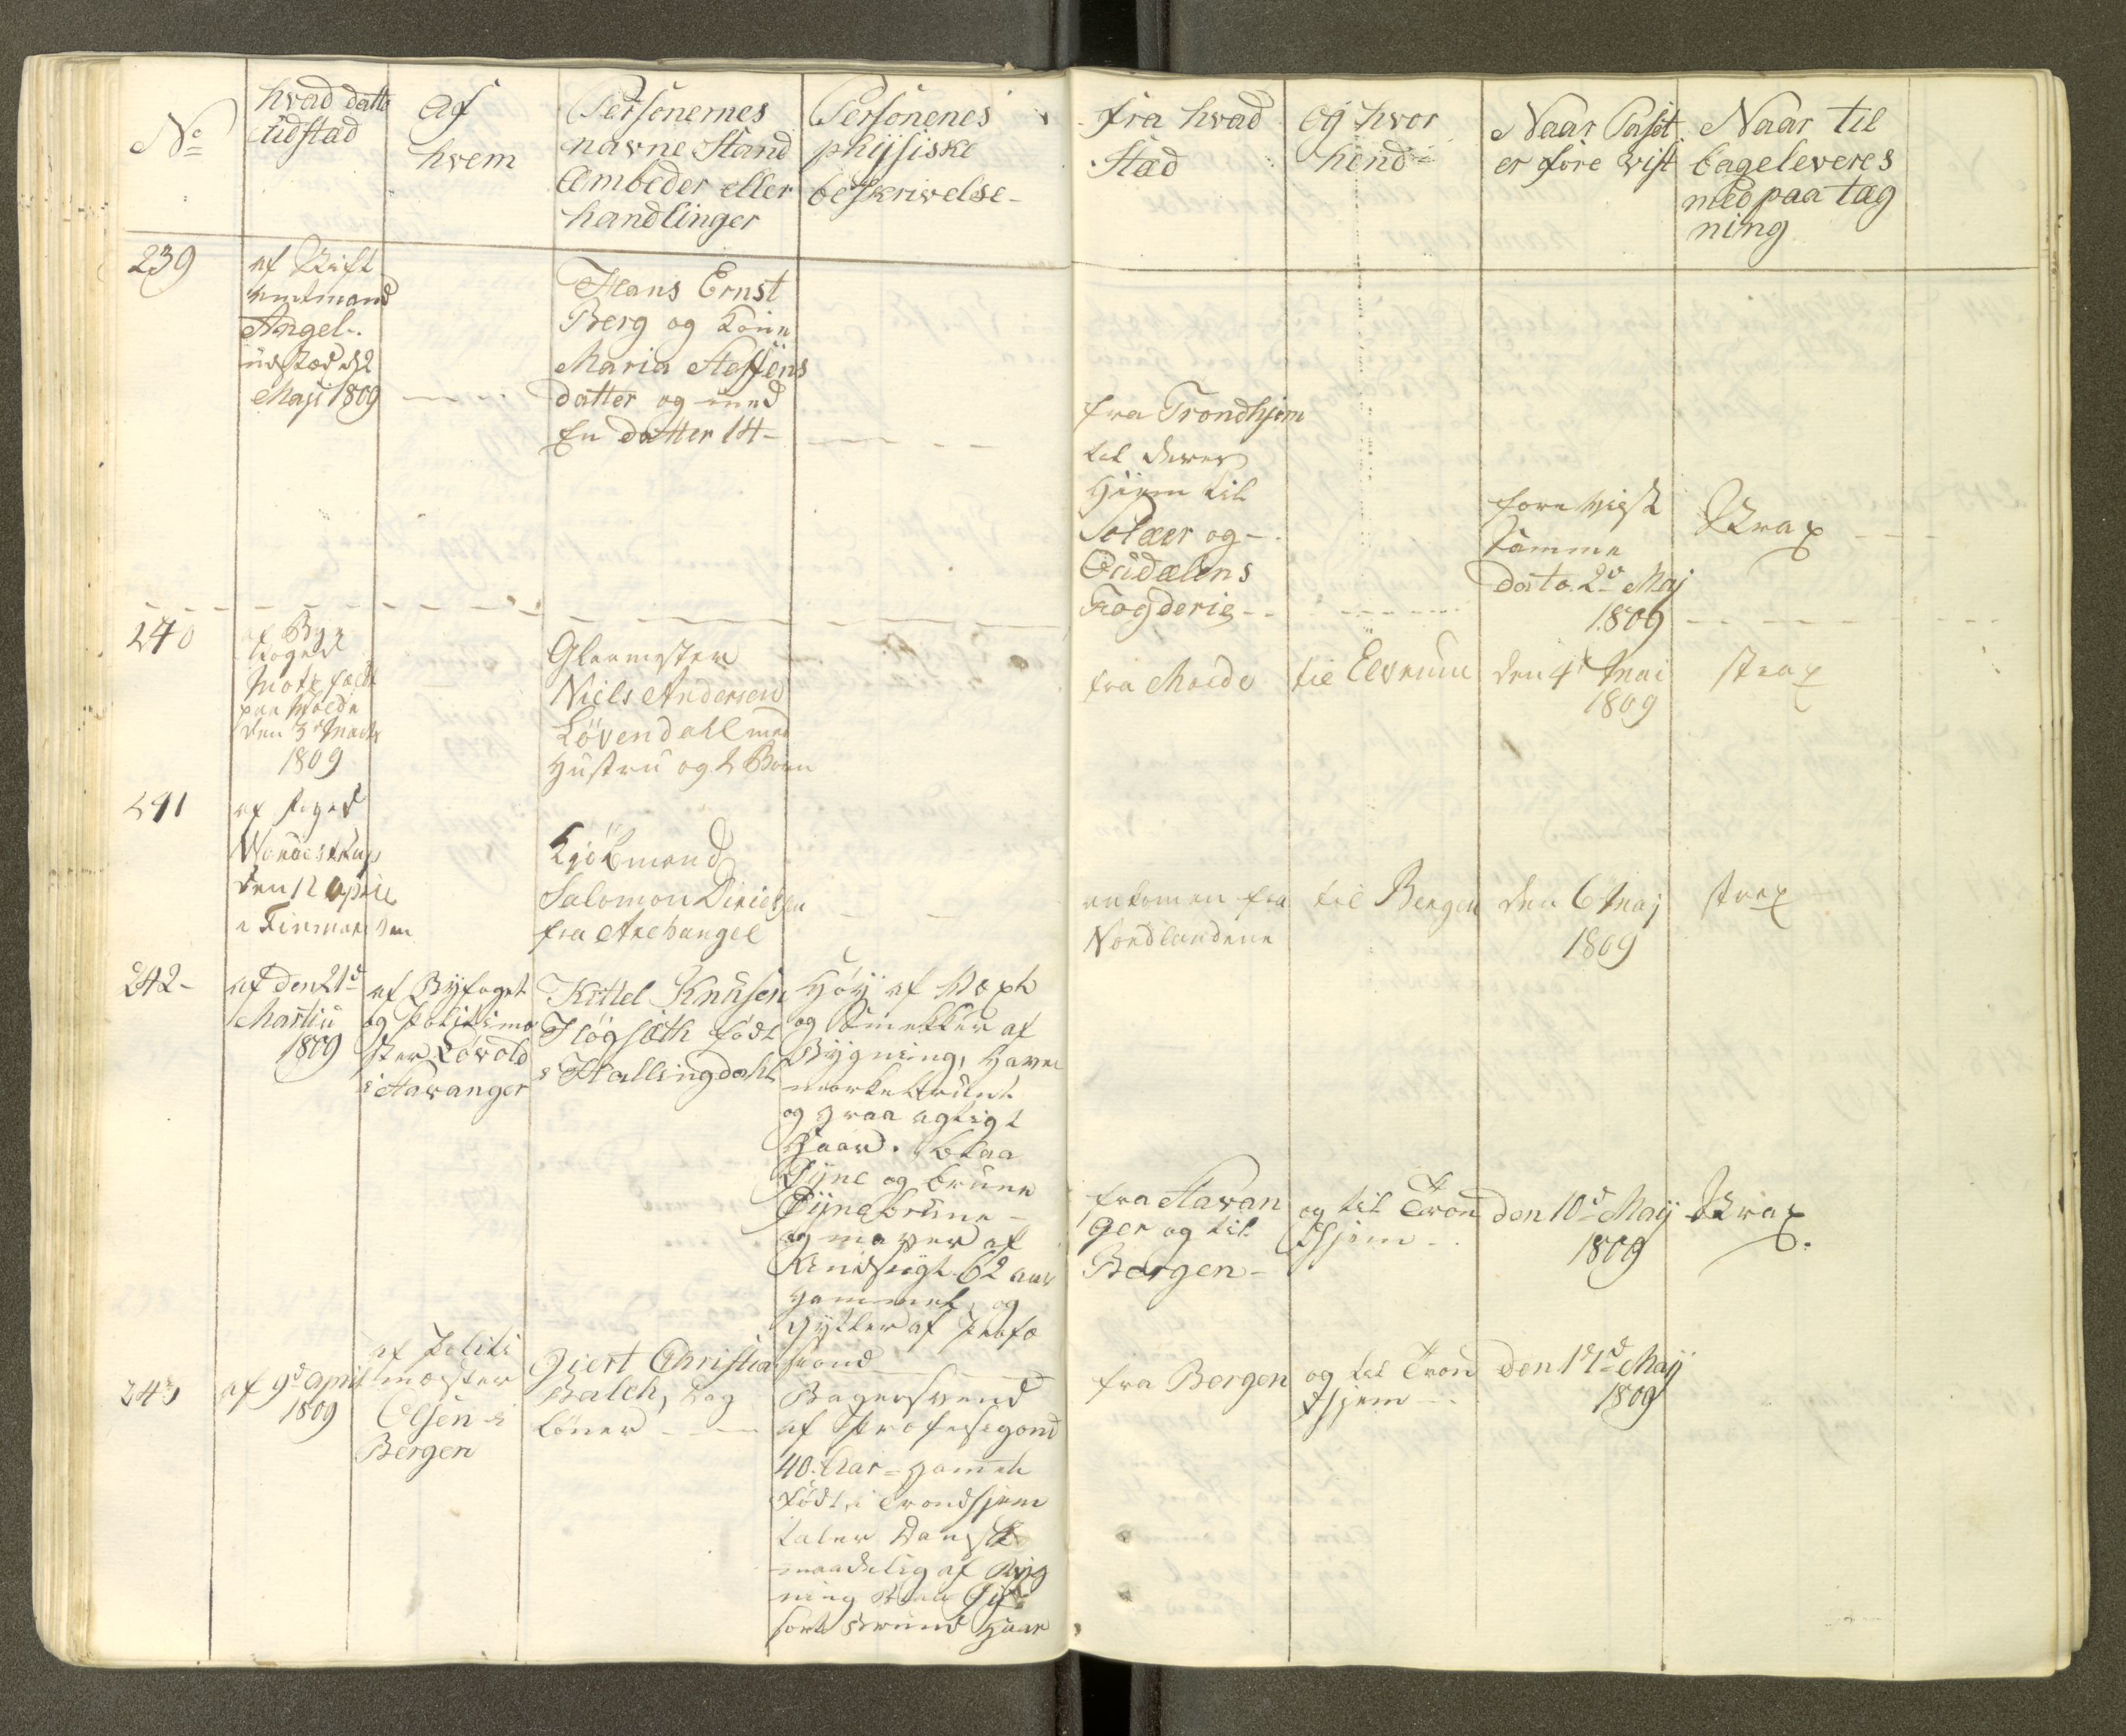 No
hvad datto
udstæd
Af
hvem
Personernes
navne Stand
Embeder eller
handlinger
Personenes
phÿsiske
beskrivelse-
fra hvad
Stæd
og hvor
hend
Naar Paset
er fore vist
Naar til
bageleveres
med paa tæg
ning
239
af Stift
amtmand
Angel.
udstæd d 2
Maji 1809
Hans Ernst
Berg og Kone
Maria Steffens
datter og med
En datter 14-
fra Trondhjem
til deres
Hiem til
Solæer og-
Oudalens
Fogderie--
fore viist
samme
dato. 2d Maj
1809
Strax
240
af Bye
foged
paa Molde
den 3d
1809
Glarmester
Niels Andersen
Lövendahl med
Hustru og 2 Börn
fra Molde
til Elverum
den 4d Mai
1809
strax
241
af foged
den 12 April
i Finmarken
Kjöbmand
Salomon
fra Archangel
ankomen fra
Nordlandene
til Bergen
den 6 Maj
1809
strax
242-
af den 21d
Martiii
1809
af Byfoget
og Politime
ster Lövold
i Stavanger
Kittel Knusen
Högsæth födt
i Hallingdahl
Höÿ af Vext
og Smekker af
Bÿgning, haver
morkebrunt
og graa agtigt
Haar. blaa
Öÿne og brune
Öÿnebrune-
og mager af
Andsigt 62 aar
gammel, og
Gÿtler af Profe
sion
fra Stavan
ger og til
Bergen-
og til Tron
hjem-
den 10d Maij
1809
Strax
243
af 9d April
1809
af Politi
mester
Olsen i
Bergen
Giert Christian
Balch, Dag
löner
Bagersvend
af Profesigond
40. Aar- gamel
födt i Trondhjem
taler Dansk
maadelig af Byg
ning blaa Öÿ
sort bruun Haar
fra Bergen
og til Tron
hjem
den 11d Maij
1809